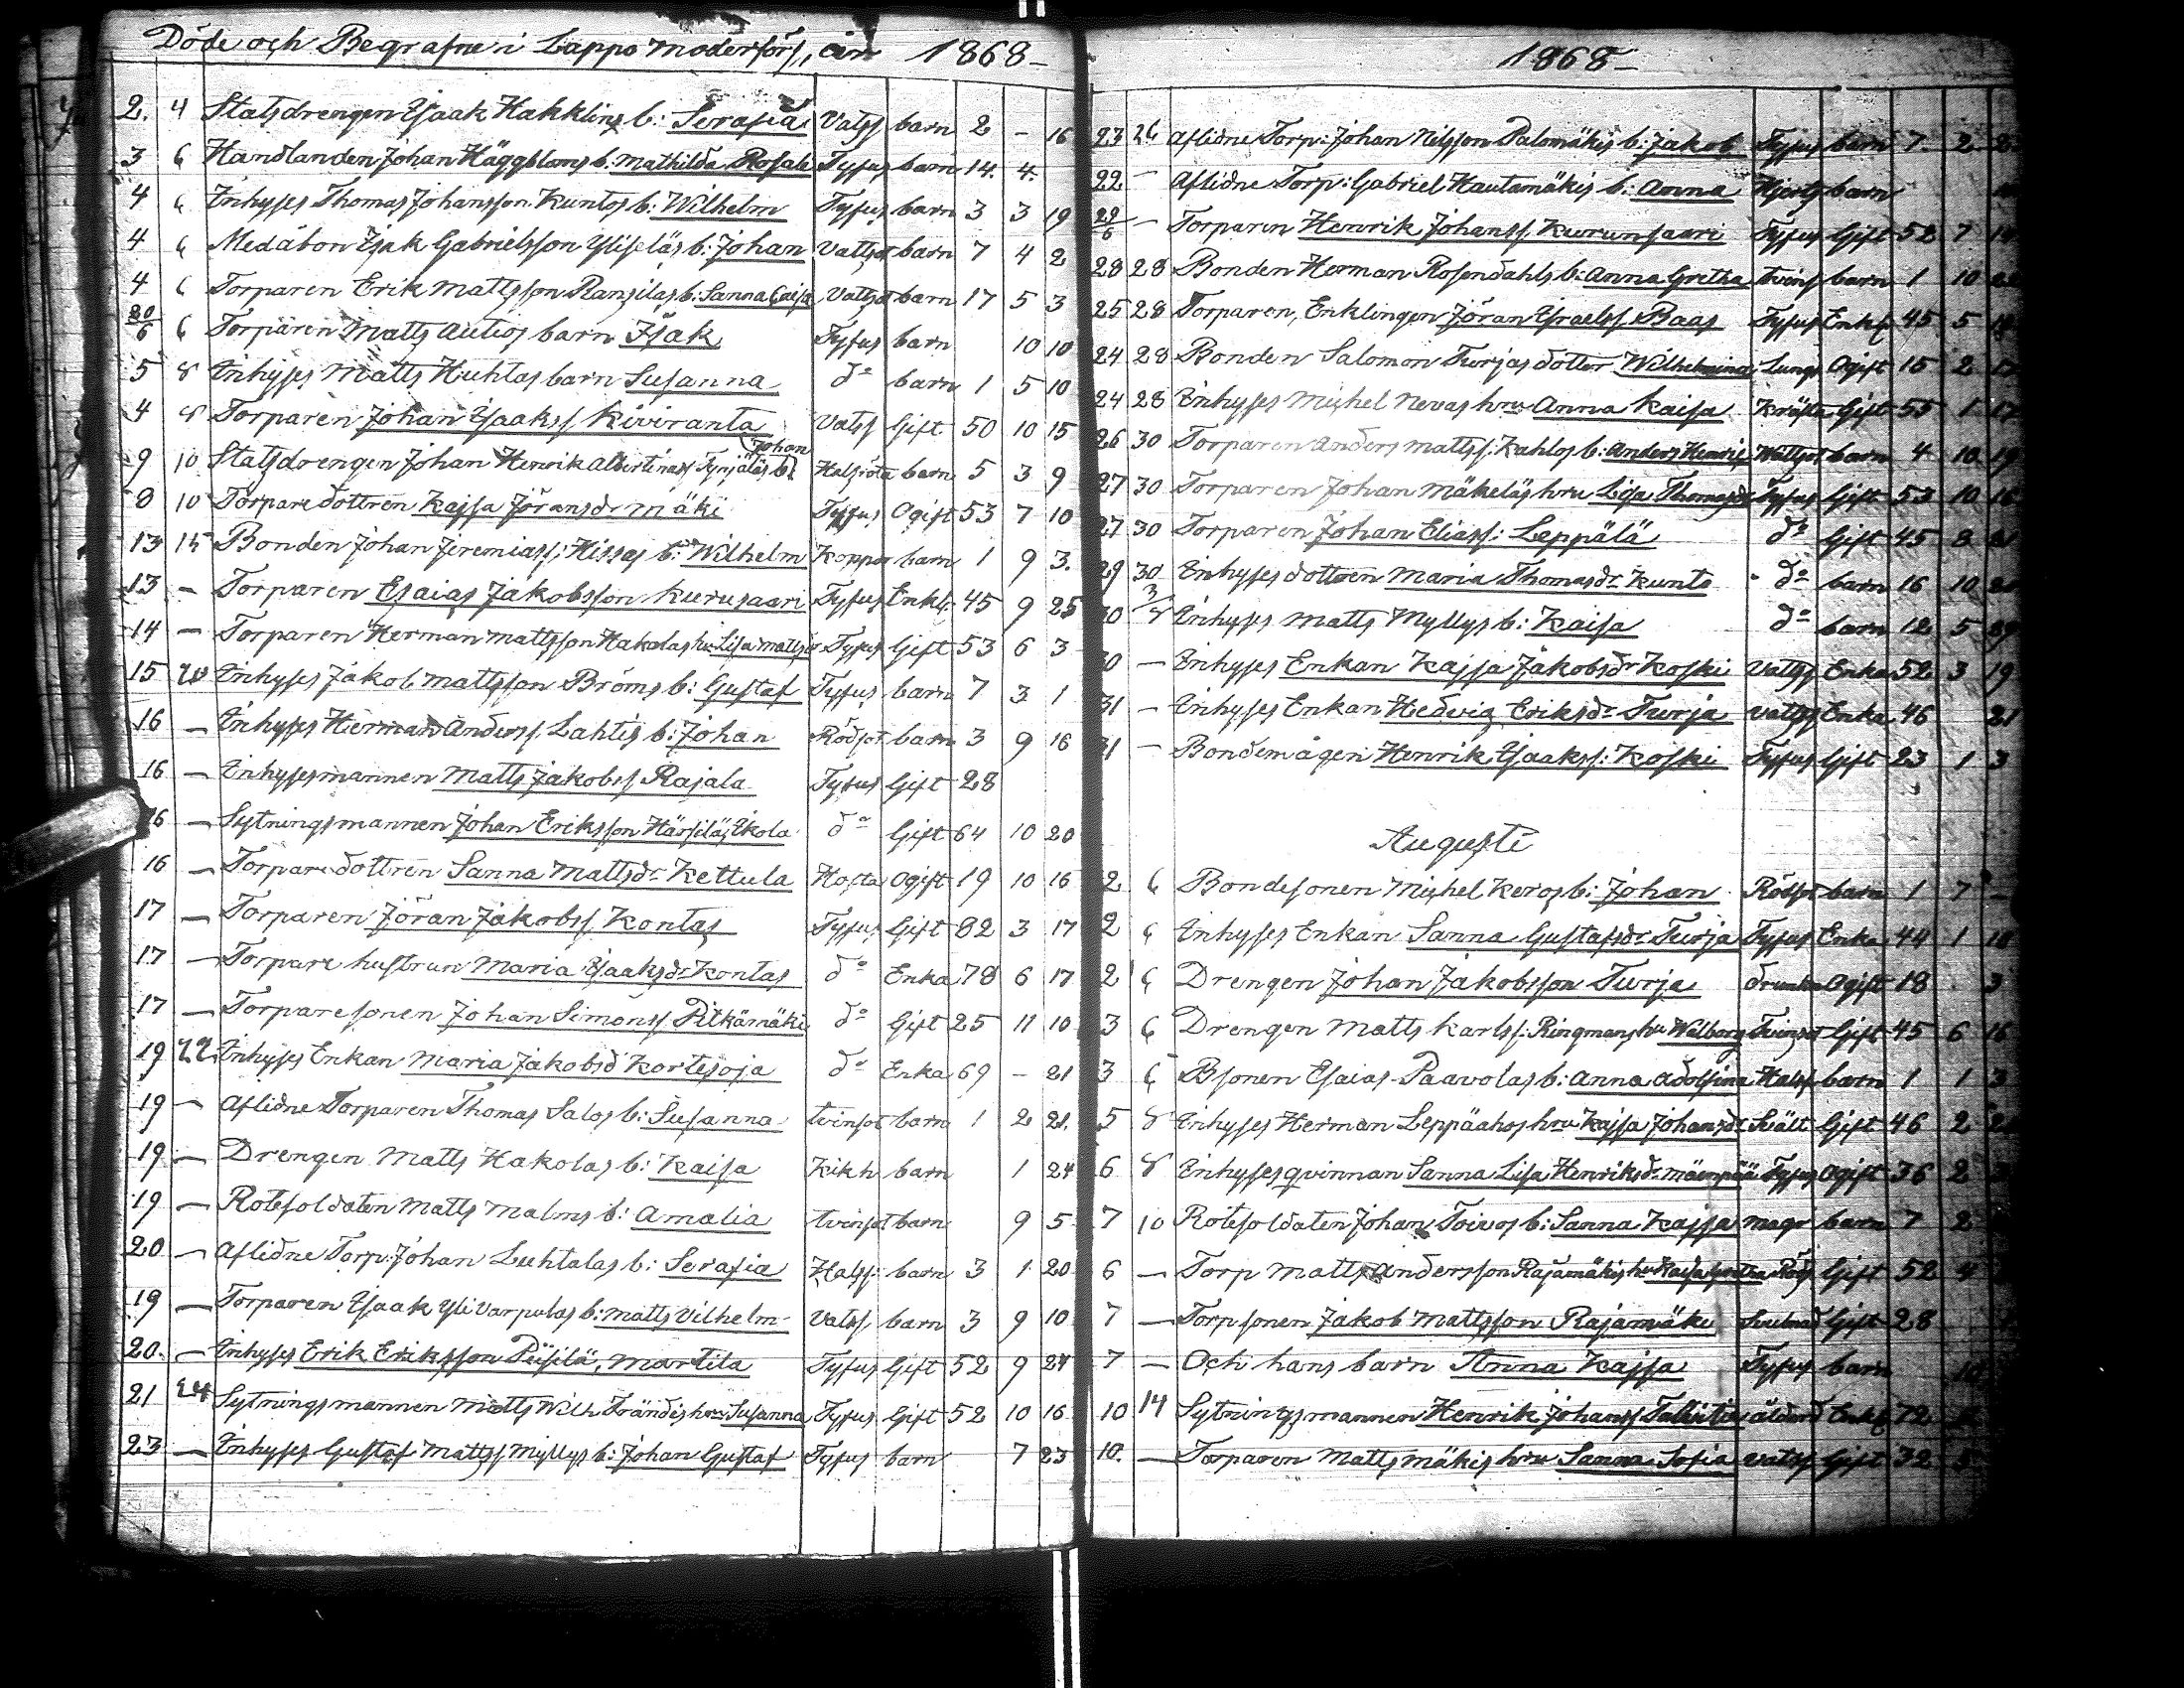 Döde och Begrafne i Lappo moderförs., år 1868 -
2. 4 Statsdrengen Isaak Hakklins b: Serafia Vatss barn 2 - 16
3 6 Handlanden Johan Häggbloms b: Mathilda Rosale Tyfus barn 14. 4.
4 6 Inhyses Thomas Johansson Kuntos b: Wilhelm Tyfus barn 3 3 19
4 6 Medåbon Isak Gabrielsson Yliseläs b: Johan Vattsot barn 7 4 2
4 6 Torparen Erik Mattsson Ransilas b: Sanna Caisa Vattsot barn 17 5 3
20/6 6 Torparen Matts Autios barn Isak Tyfus barn 10 10
5 8 Inhyses Matts Huhtas barn Susanna do barn 1 5 10
4 8 Torparen Johan Isakss Kiviranta Vatss Gift 50 10 15
9 10 Statsdrengen Johan Henrik Albertinass Tynjäläs b: Johan Halsröta barn 5 3 9
8 10 Torparedottren Kajsa Jöransdr Mäki Tyfus Ogift 53 7 10
13 15 Bonden Johan Jeremiass: Hissas b: Wilhelm Koppor barn 1 9 3.
13 - Torparen Esaias Jakobsson Kurusaari Tyfus Enkl: 45 9 25
14 - Torparen Herman Mattsson Hakolas hu Lisa Mattsdr Tyfus Gift 53 6 3
15 20 Inhyses Jakob Mattsson Bröms b: Gustaf Tyfus barn 7 3 1
16 - Inhyses Herman Anderss. Lahtis b: Johan Rödsot barn 3 9 16
16 - Inhysesmannen Matts Jakobss Rajala Tyfus Gift 28
16 - Sytningsmannen Johan Eriksson Härsilä, Ekola do Gift 64 10 20
16 - Torparedottren Sanna Mattsdr Kettula Hosta Ogift 19 10 16
17 - Torparen Jöran Jakobss Kontas Tyfus Gift 82 3 17
17 - Torpare hustrun Maria Isaaksdr Kontas do Enka 78 6 17
17 - Torparesonen Johan Simonss Pitkämäki do Gift 25 11 10
19 22 Inhyses Enkan Maria Jakobsd Kortesoja do Enka 69 - 21
19 - Aflidne Torparen Thomas Salos b: Susanna tvinsot barn 1 2 21.
19 - Drengen Matts Hakolas b: Kaisa Kikh barn 1 24
19 - Rotesoldaten Matts Malms b: Amalia tvinsot barn 9 5
20 - Aflidne Torp: Johan Luhtalas b: Serafia Halss: barn 3 1 20
19 - Torparen Isaak Ylivarpulas b: Matts Vilhelm Vatss barn 3 9 10
20. - Inhyses Erik Eriksson Piisilä, Martila Tyfus Gift 52 9 27
21 24 Sytningsmannen Matts Wilh Frändis hru Susanna Tyfus Gift 52 10 16
23 - Inhyses Gustaf Mattss Myllys b: Johan Gustaf Tyfus barn 7 23
1868 -
23 26 Aflidne Torp: Johan Nilsson Palomäkis b: Jakob Tyfus barn 7 2
22 - Aflidne Torp: Gabriel Kautamäkis b: Anna Hjerts barn
29/6 - Torparen Henrik Johanss. Kurunsaari Tyfus Gift 52 7
28 28 Bonden Herman Rosendahls b: Anna Gretha tvins barn 1 10
25 28 Torparen, Enklingen Jöran Israelss Baas Tyfus Enkl 45 5
24 28 Bonden Salomon Turjas dotter Wilhelmina Lungs Ogift 15 2
24 28 Inhyses Mishel Nevas hru Anna Kaisa Kräfta Gift 55 1 17
26 30 Torparen Anders Mattss: Kahlos b: Anders Henrik Wattsot barn 4 10 19
27 30 Torparen Johan Mäkeläs hru Lisa Thomasdr Tyfus Gift 53 10 16
27 30 Torparen Johan Eliass: Leppälä do Gift 45 8 21
29 30 Inhyses dottren Maria Thomasdr Kunto do barn 16 10
30 3/4 Inhyses Matts Myllys b: Kaisa do barn 12 5 29
30 - Inhyses Enkan Kajsa Jakobsdr Koski Vattss Enka 52 3 19
31 - Inhyses Enkan Hedvig Eriksdr Turja vattss Enka 46 21
31 - Bondemågen Henrik Isaakss: Koski Tyfus Gift 23 1 3
Augusti
2 6 Bondesonen Mishel Keros b: Johan Rödsot barn 1 7 -
2 6 Inhyses Enkan Sanna Gustafsdr Turja Tyfus Enka 44 1 18
2 6 Drengen Johan Jakobsson Turja drunkn Ogift 18 3
3 6 Drengen Matts Karlss: Ringmans hu Walborg Tvinsot Gift 45 6 16
3 6 Bsonen Esaias Paavolas b: Anna Adolfina Halss barn 1 1 3
5 8 Inhyses Herman Leppäahos hru Kajsa Johansdr Svält Gift 46 2
6 8 Inhysesqvinnan Sanna Lisa Henriksdr Mäenpää Tyfus Ogift 36 2
7 10 Rotesoldaten Johan Toivos b: Sanna Kajsa magr barn 7 2
6 - Torp Matts Andersson Rajamäkis hu Kaisa Gretha Röds Gift 52 4
7 - Torpsonen Jakob Mattsson Rajamäki Gift 28
7 - Och hans barn Anna Kajsa Tyfus barn
10 14 Sytningsmannen Henrik Johanss ålderd Enkl 72
10. - Torparen Matts Mäkis hru Sanna Sofia vatss Gift 32 5